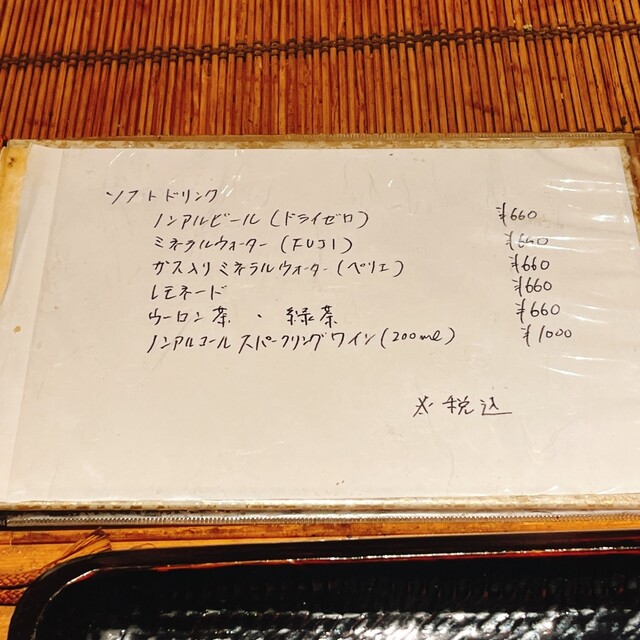 ソフトドリンク
ノンアルビール (ドライゼロ) ¥660
ミネラルウォーター (FUJI) ¥660
ガス入りミネラルウォーター (ペリエ) ¥660
レモネード ¥660
ウーロン茶 ・ 緑茶 ¥660
ノンアルコールスパークリングワイン (200ml) ¥1000
※税込